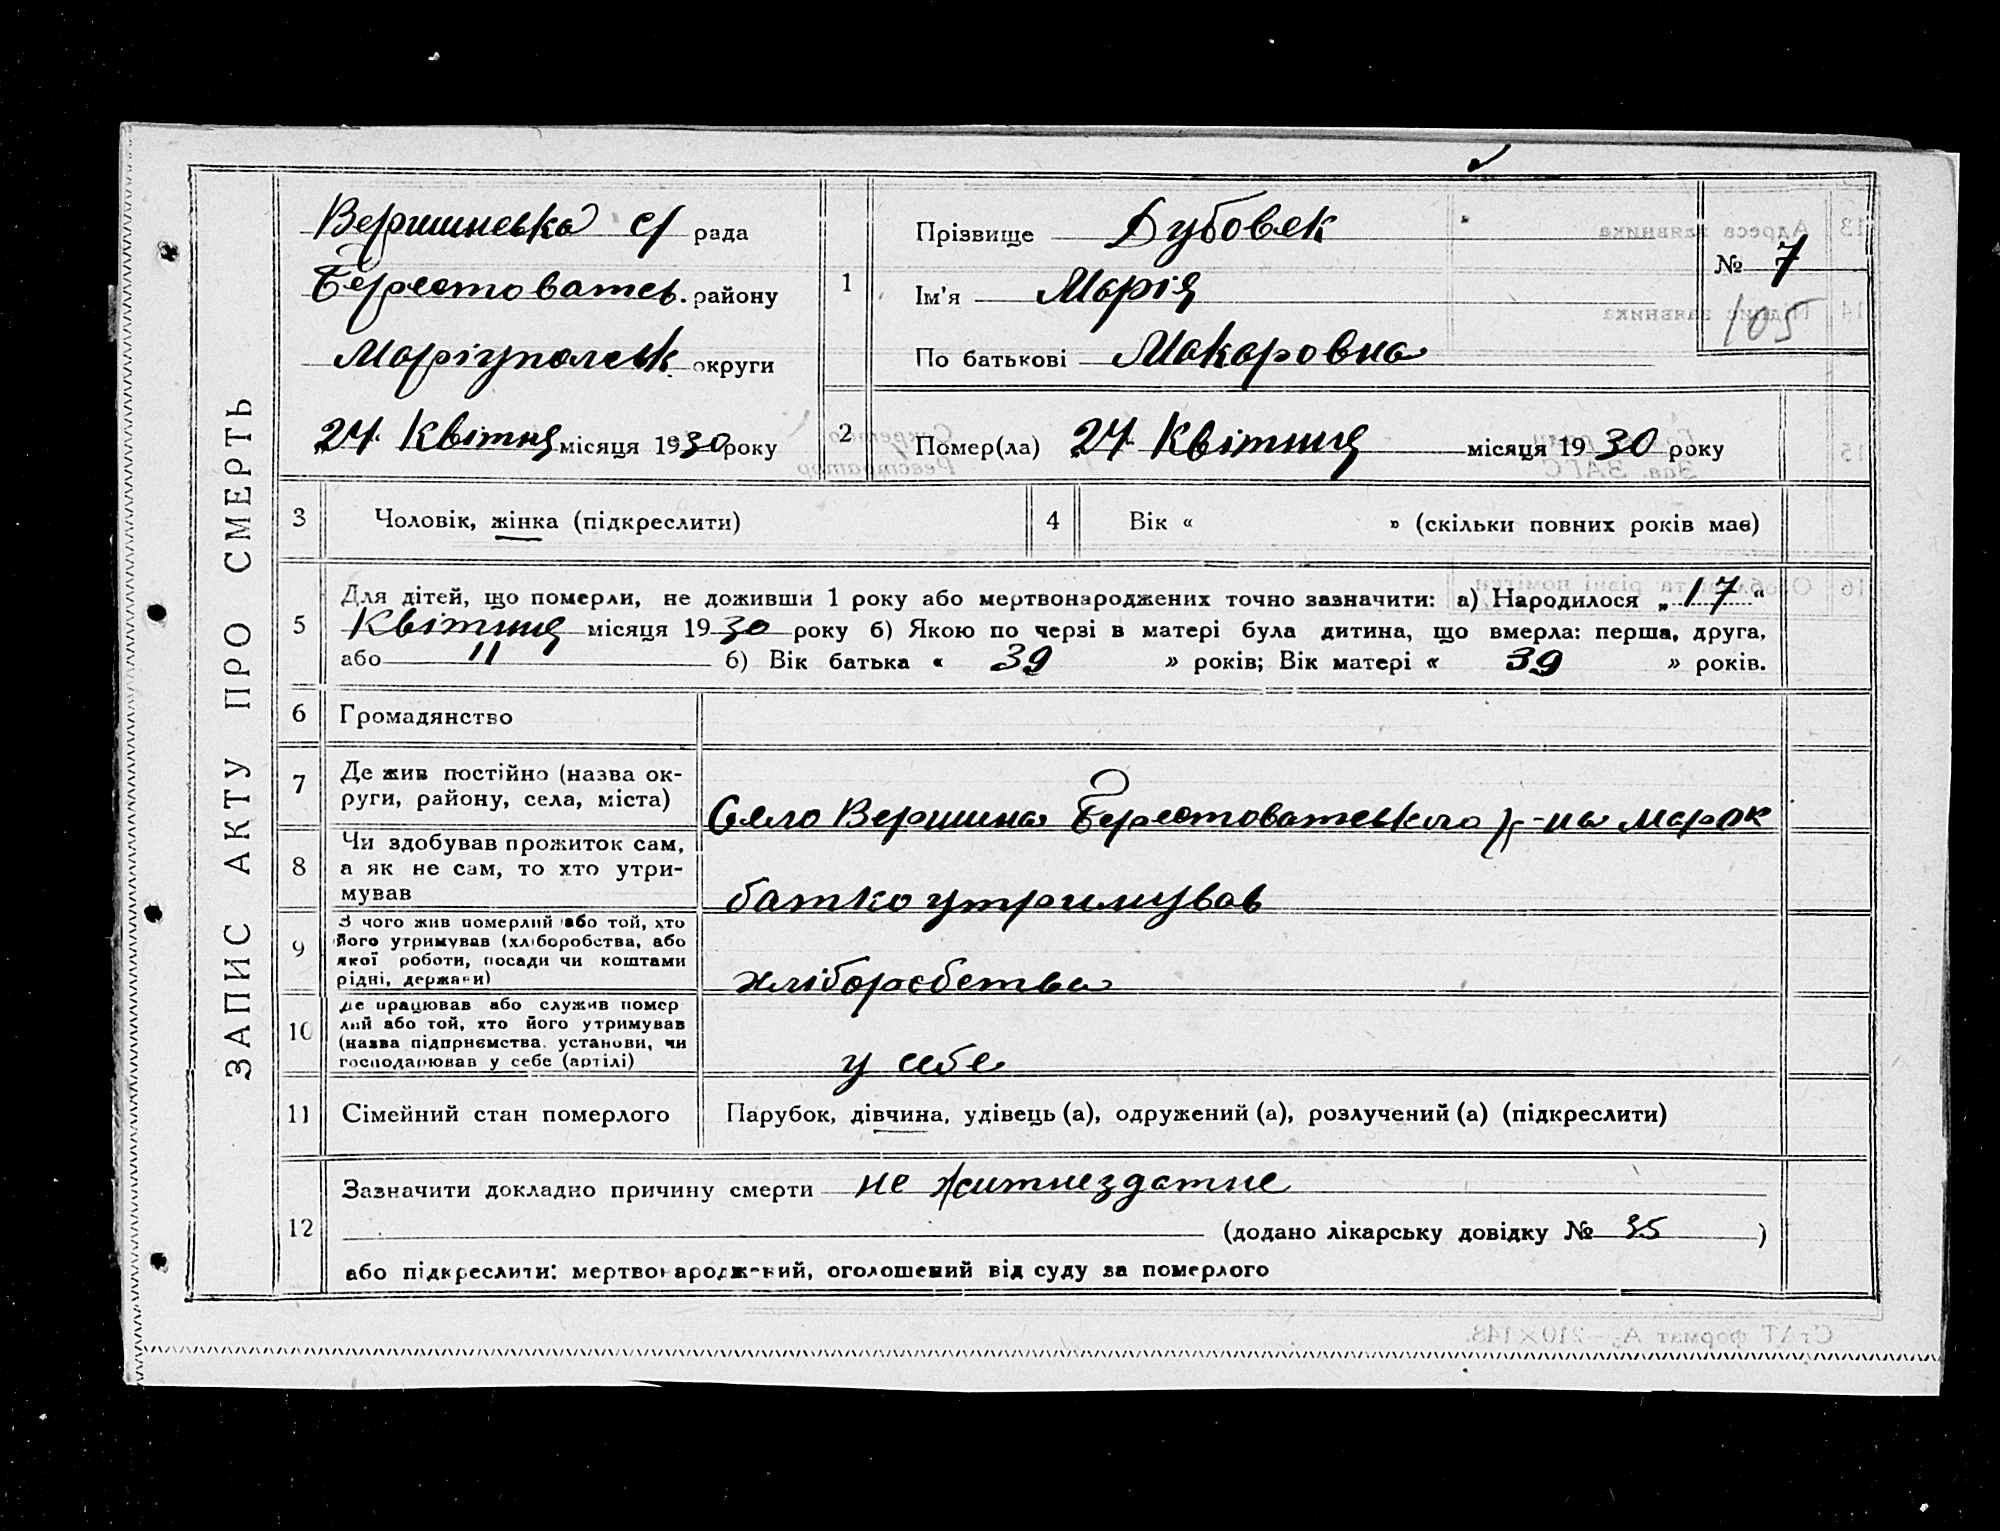 ЗАПИС АКТУ ПРО СМЕРТЬ
Вершинська с/ рада
Берестоватсь. району
Маріупольськ округи
„24" Квітня місяця 1930 року
1
Прізвище Дубовек
Ім'я Марія
По батькові Макаровна
№ 7
105
2
Помер(ла) „24" Квітння місяця 1930 року
3 Чоловік, жінка (підкреслити)
4 Вік « » (скільки повних років має)
5 Для дітей, що померли, не доживши 1 року або мертвонароджених точно зазначити: а) Народилося „17"
Квітння місяця 1930 року б) Якою по черзі в матері була дитина, що вмерла: перша, друга,
або 11 б) Вік батька « 39 » років; Вік матері « 39 » років.
6 Громадянство
7 Де жив постійно (назва ок-
руги, району, села, міста)
Село Вершина Берестоватського р-на Марок
8 Чи здобував прожиток сам,
а як не сам, то хто утри-
мував
батко утримував
9 З чого жив померлий або той, хто
його утримував (хліборобства, або
якої роботи, посади чи коштами
рідні, держави)
хліборобства
10 Де працював або служив помер
лий або той, хто його утримував
(назва підприємства, установи, чи
господарював у себе (артілі)
у себе
11 Сімейний стан померлого
Парубок, дівчина, удівець (а), одружений (а), розлучений (а) (підкреслити)
12
Зазначити докладно причину смерти не житнездатне
(додано лікарську довідку № 35 )
або підкреслити: мертвонароджений, оголошений від суду за померлого